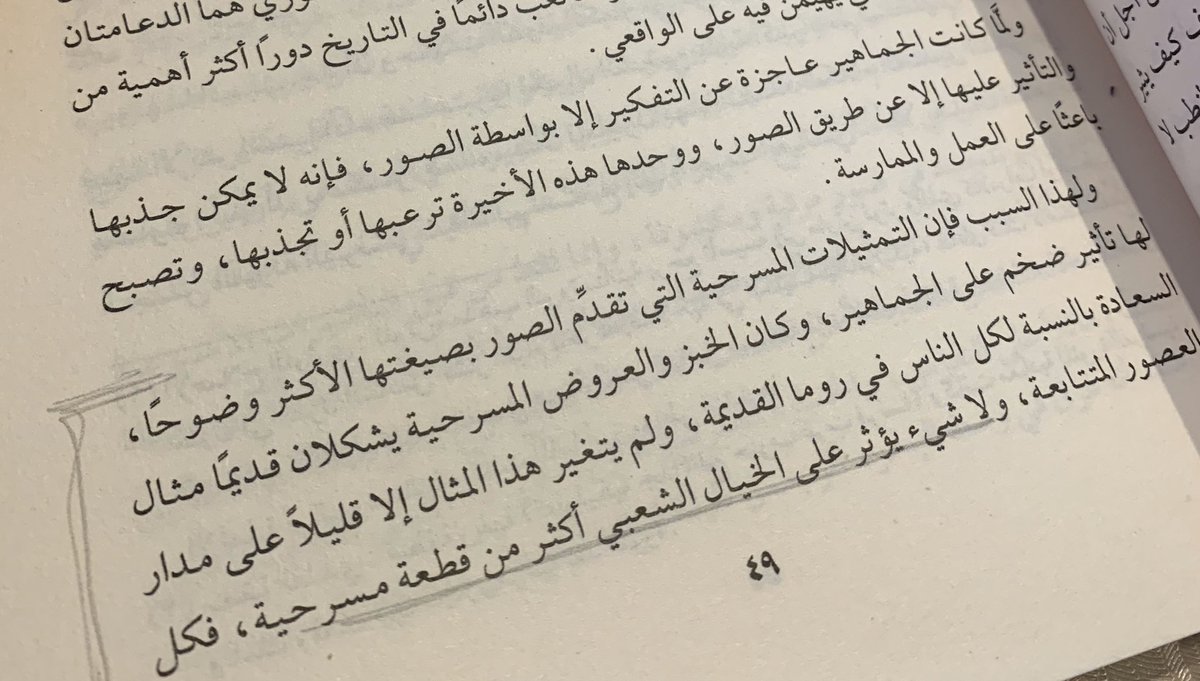 هما الدعامتان
دائمًا في التاريخ دورًا أكثر أهمية من
يهيمن فيه على الواقعي.
ولمّا كانت الجماهير عاجزة عن التفكير إلا بواسطة الصور، فإنه لا يمكن جذبها
والتأثير عليها إلا عن طريق الصور، ووحدها هذه الأخيرة ترعبها أو تجذبها، وتصبح
باعثًا على العمل والممارسة.
ولهذا السبب فإن التمثيلات المسرحية التي تقدِّم الصور بصيغتها الأكثر وضوحًا،
لها تأثير ضخم على الجماهير، وكان الخبز والعروض المسرحية يشكلان قديمًا مثال
السعادة بالنسبة لكل الناس في روما القديمة، ولم يتغير هذا المثال إلا قليلاً على مدار
العصور المتتابعة، ولا شيء يؤثر على الخيال الشعبي أكثر من قطعة مسرحية، فكل
٤٩
أجل أن
كيف يثير